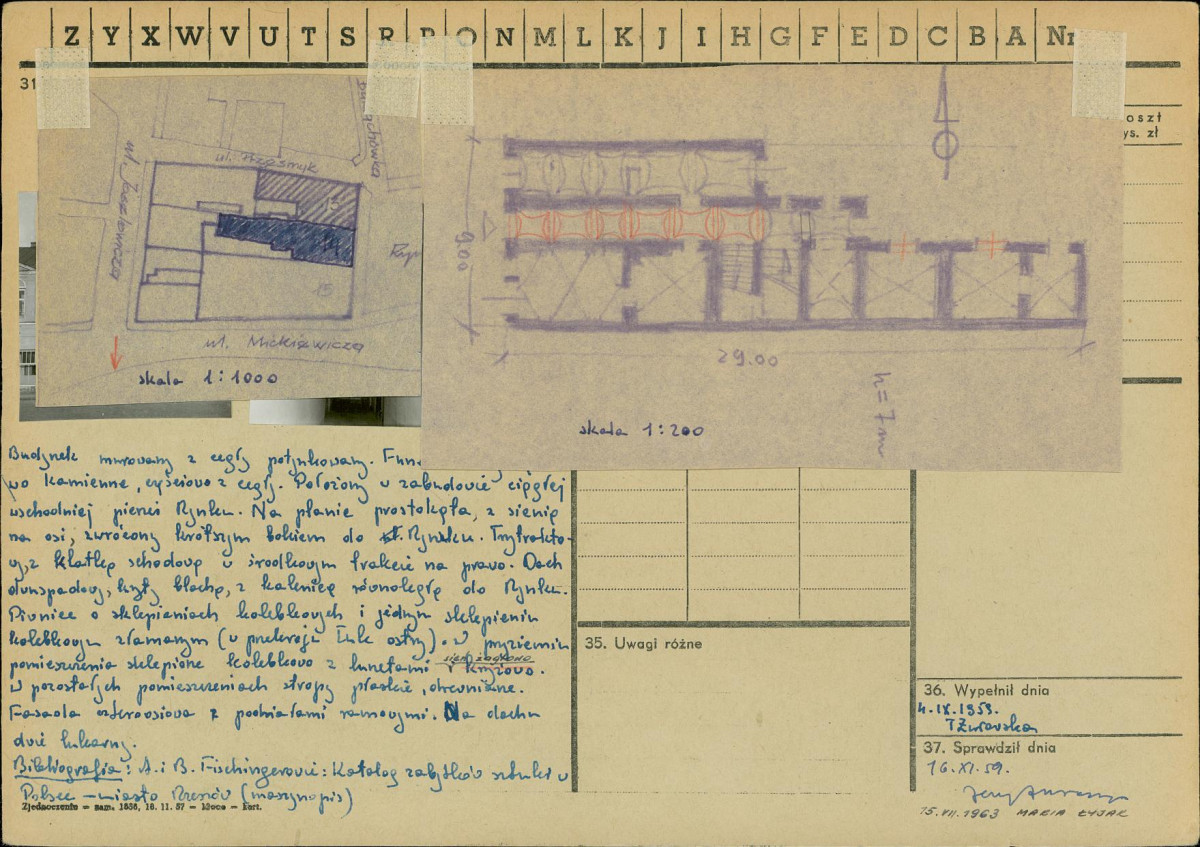 Z Y X W V U T S R P O N M L K J I H G F E D C B A Nr
31
oszt
ys. zł
ul. Mickiewicza
15
skala 1:1000
9.00
29.00
h=7m
skala 1:200
Budynek murowany z cegły potynkowany.
wo kamienne, częściowo z cegły. Położony w zabudowie ciągłej
wschodniej pierzei Rynku. Na planie prostokąta, z sienią
na osi, zwrócony krótszym bokiem do Rynku. Trytrakto-
wy, z klatką schodową w środkowym trakcie na prawo. Dach
dwuspadowy, kryty blachą, z kalenicą równoległą do Rynku.
Piwnice o sklepieniach kolebkowych i jednym sklepieniu
kolebkowym złamanym (w przekroju łuk ostry). W przyziemiu
pomieszczenia sklepione kolebkowo z lunetami i krzyżowo.
W pozostałych pomieszczeniach stropy płaskie, drewniane.
Fasada czteroosiowa z podziałami ramowymi. Na dachu
dwie lukarny.
Bibliografia: A. i B. Fischingerowie: Katalog zabytków sztuki w
Polsce – miasto Rzeszów (maszynopis)
Zjednoczenie – zam. 1656, 16. 11. 57 – – kart.
35. Uwagi różne
36. Wypełnił dnia
4.IX.1959.
37. Sprawdził dnia
16.XI.59.
15.VII.1963 MARIA ŁYJAK